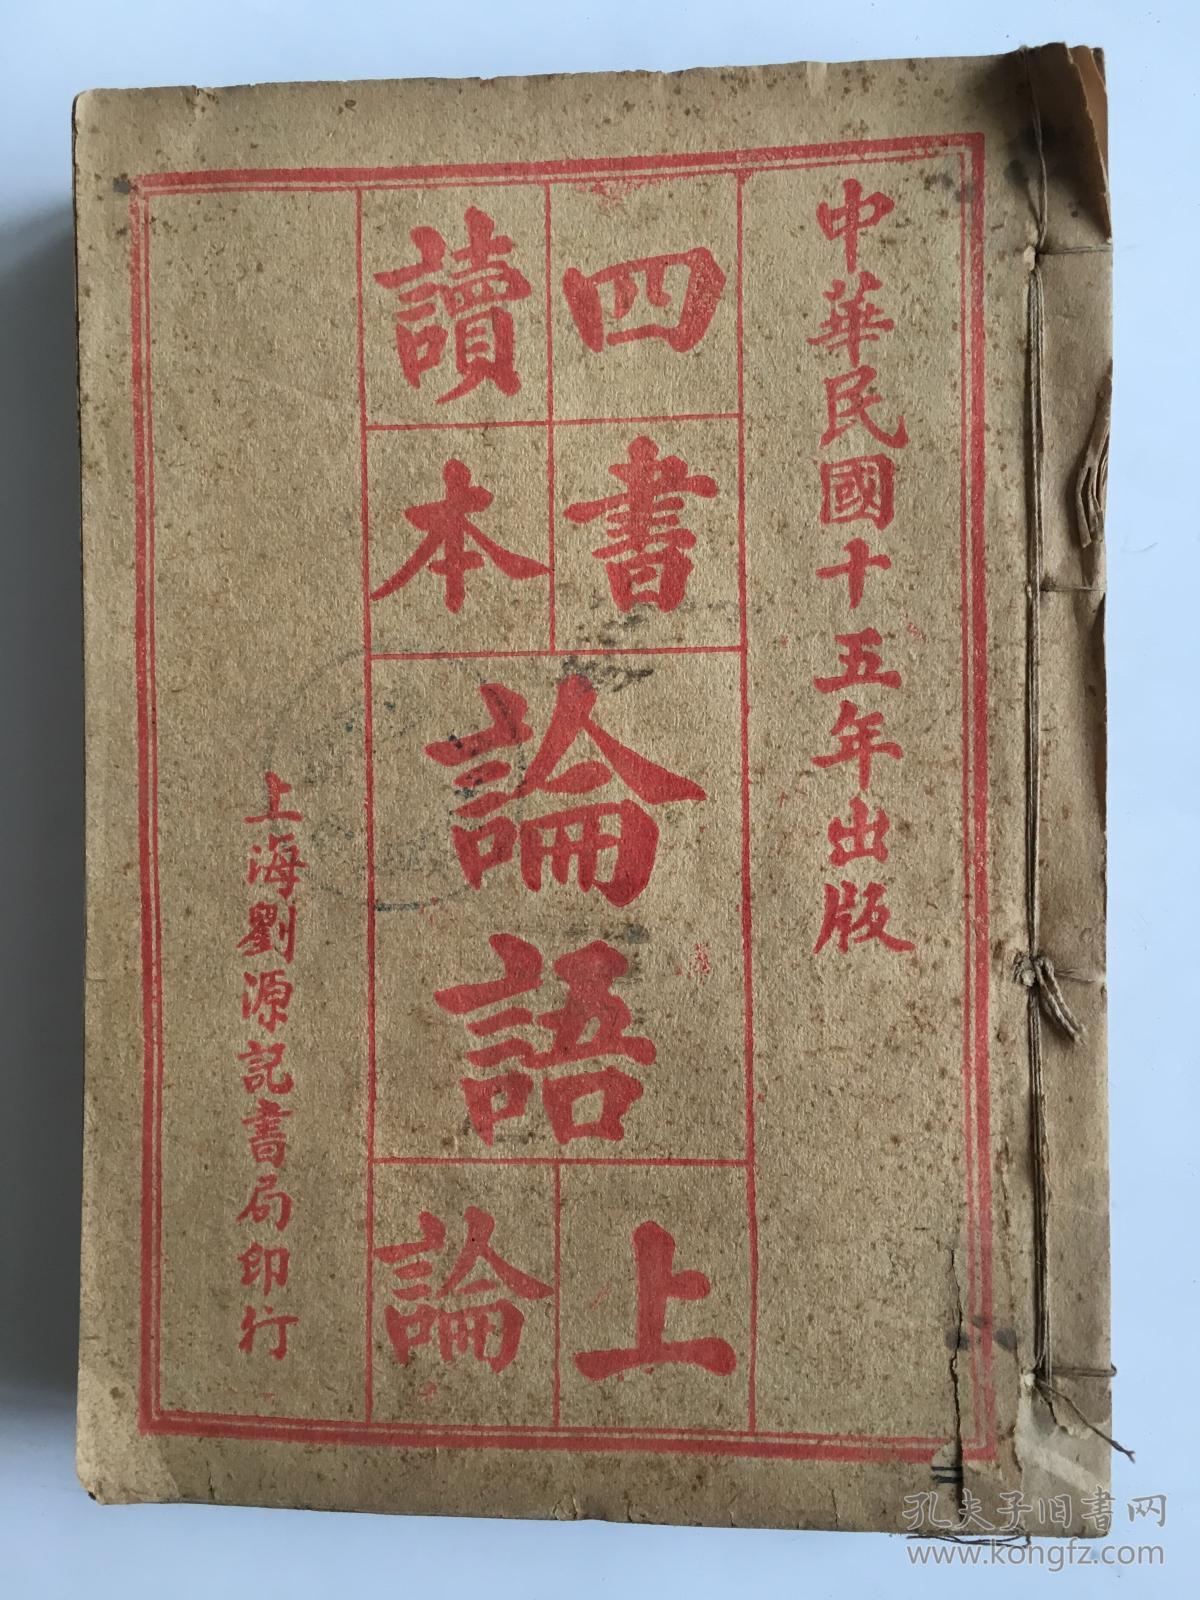 中華民國十五年出版
四書
讀本
論語
上論
上海劉源記書局印行
孔夫子旧书网
www.kongfz.com